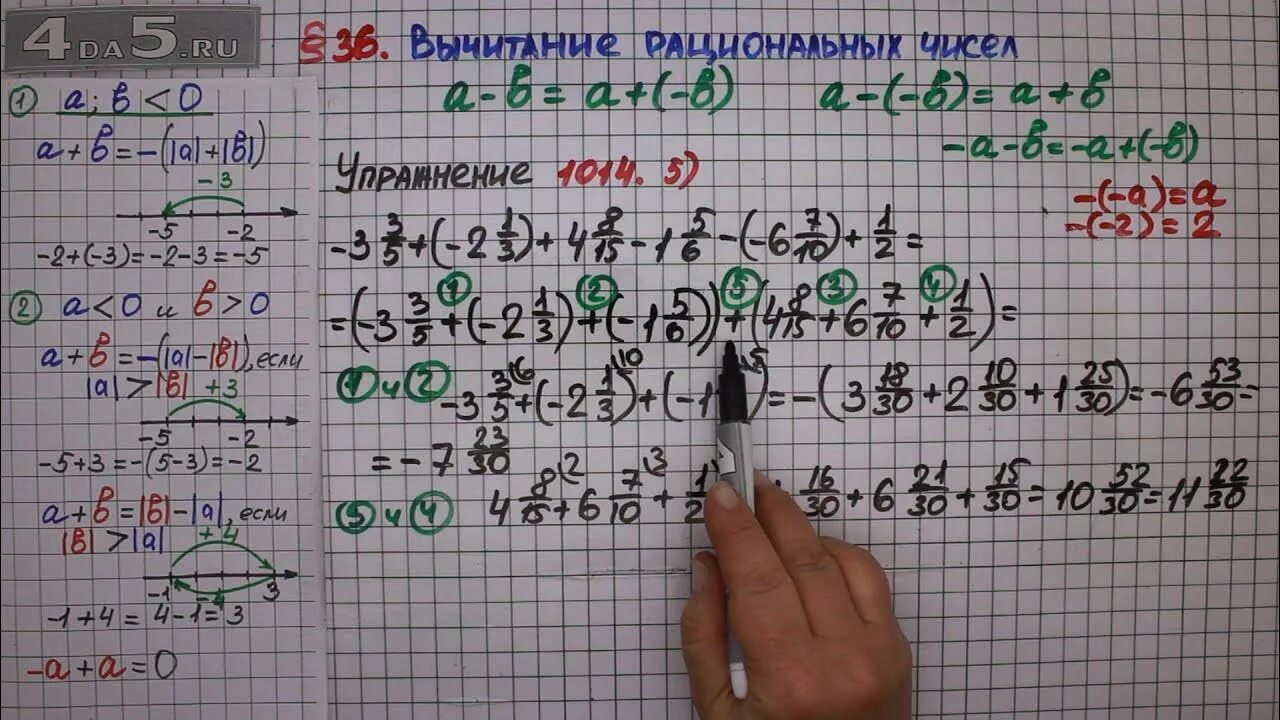 4DA5.RU
§36. Вычитание рациональных чисел
a - b = a + (-b)
a - (-b) = a + b
-a - b = -a + (-b)
-(-a) = a
-(-2) = 2
① a; b < 0
a + b = -(|a| + |b|)
-3
-5 -2
-2+(-3)=-2-3=-5
② a < 0 и b > 0
a + b = -(|a| - |b|), если
|a| > |b|
+3
-5 -2
-5+3=-(5-3)=-2
a + b = |b| - |a|, если
|b| > |a|
+4
-1 -4 3
-1+4 = 4-1 = 3
-a + a = 0
Упражнение 1014. 5)
-3 3/5 + (-2 1/3) + 4 8/15 - 1 5/6 - (-6 7/10) + 1/2 =
① ② ⑤ ③ ④
= (-3 3/5 + (-2 1/3) + (-1 5/6)) + (4 8/15 + 6 7/10 + 1/2) =
① и ② -3 3/5 \6 + (-2 1/3 \10) + (-1 \5) = -(3 18/30 + 2 10/30 + 1 25/30) = -6 53/30 =
= -7 23/30
③ и ④ 4 8/15 \2 + 6 7/10 \3 + 1/2 16/30 + 6 21/30 + 15/30 = 10 52/30 = 11 22/30